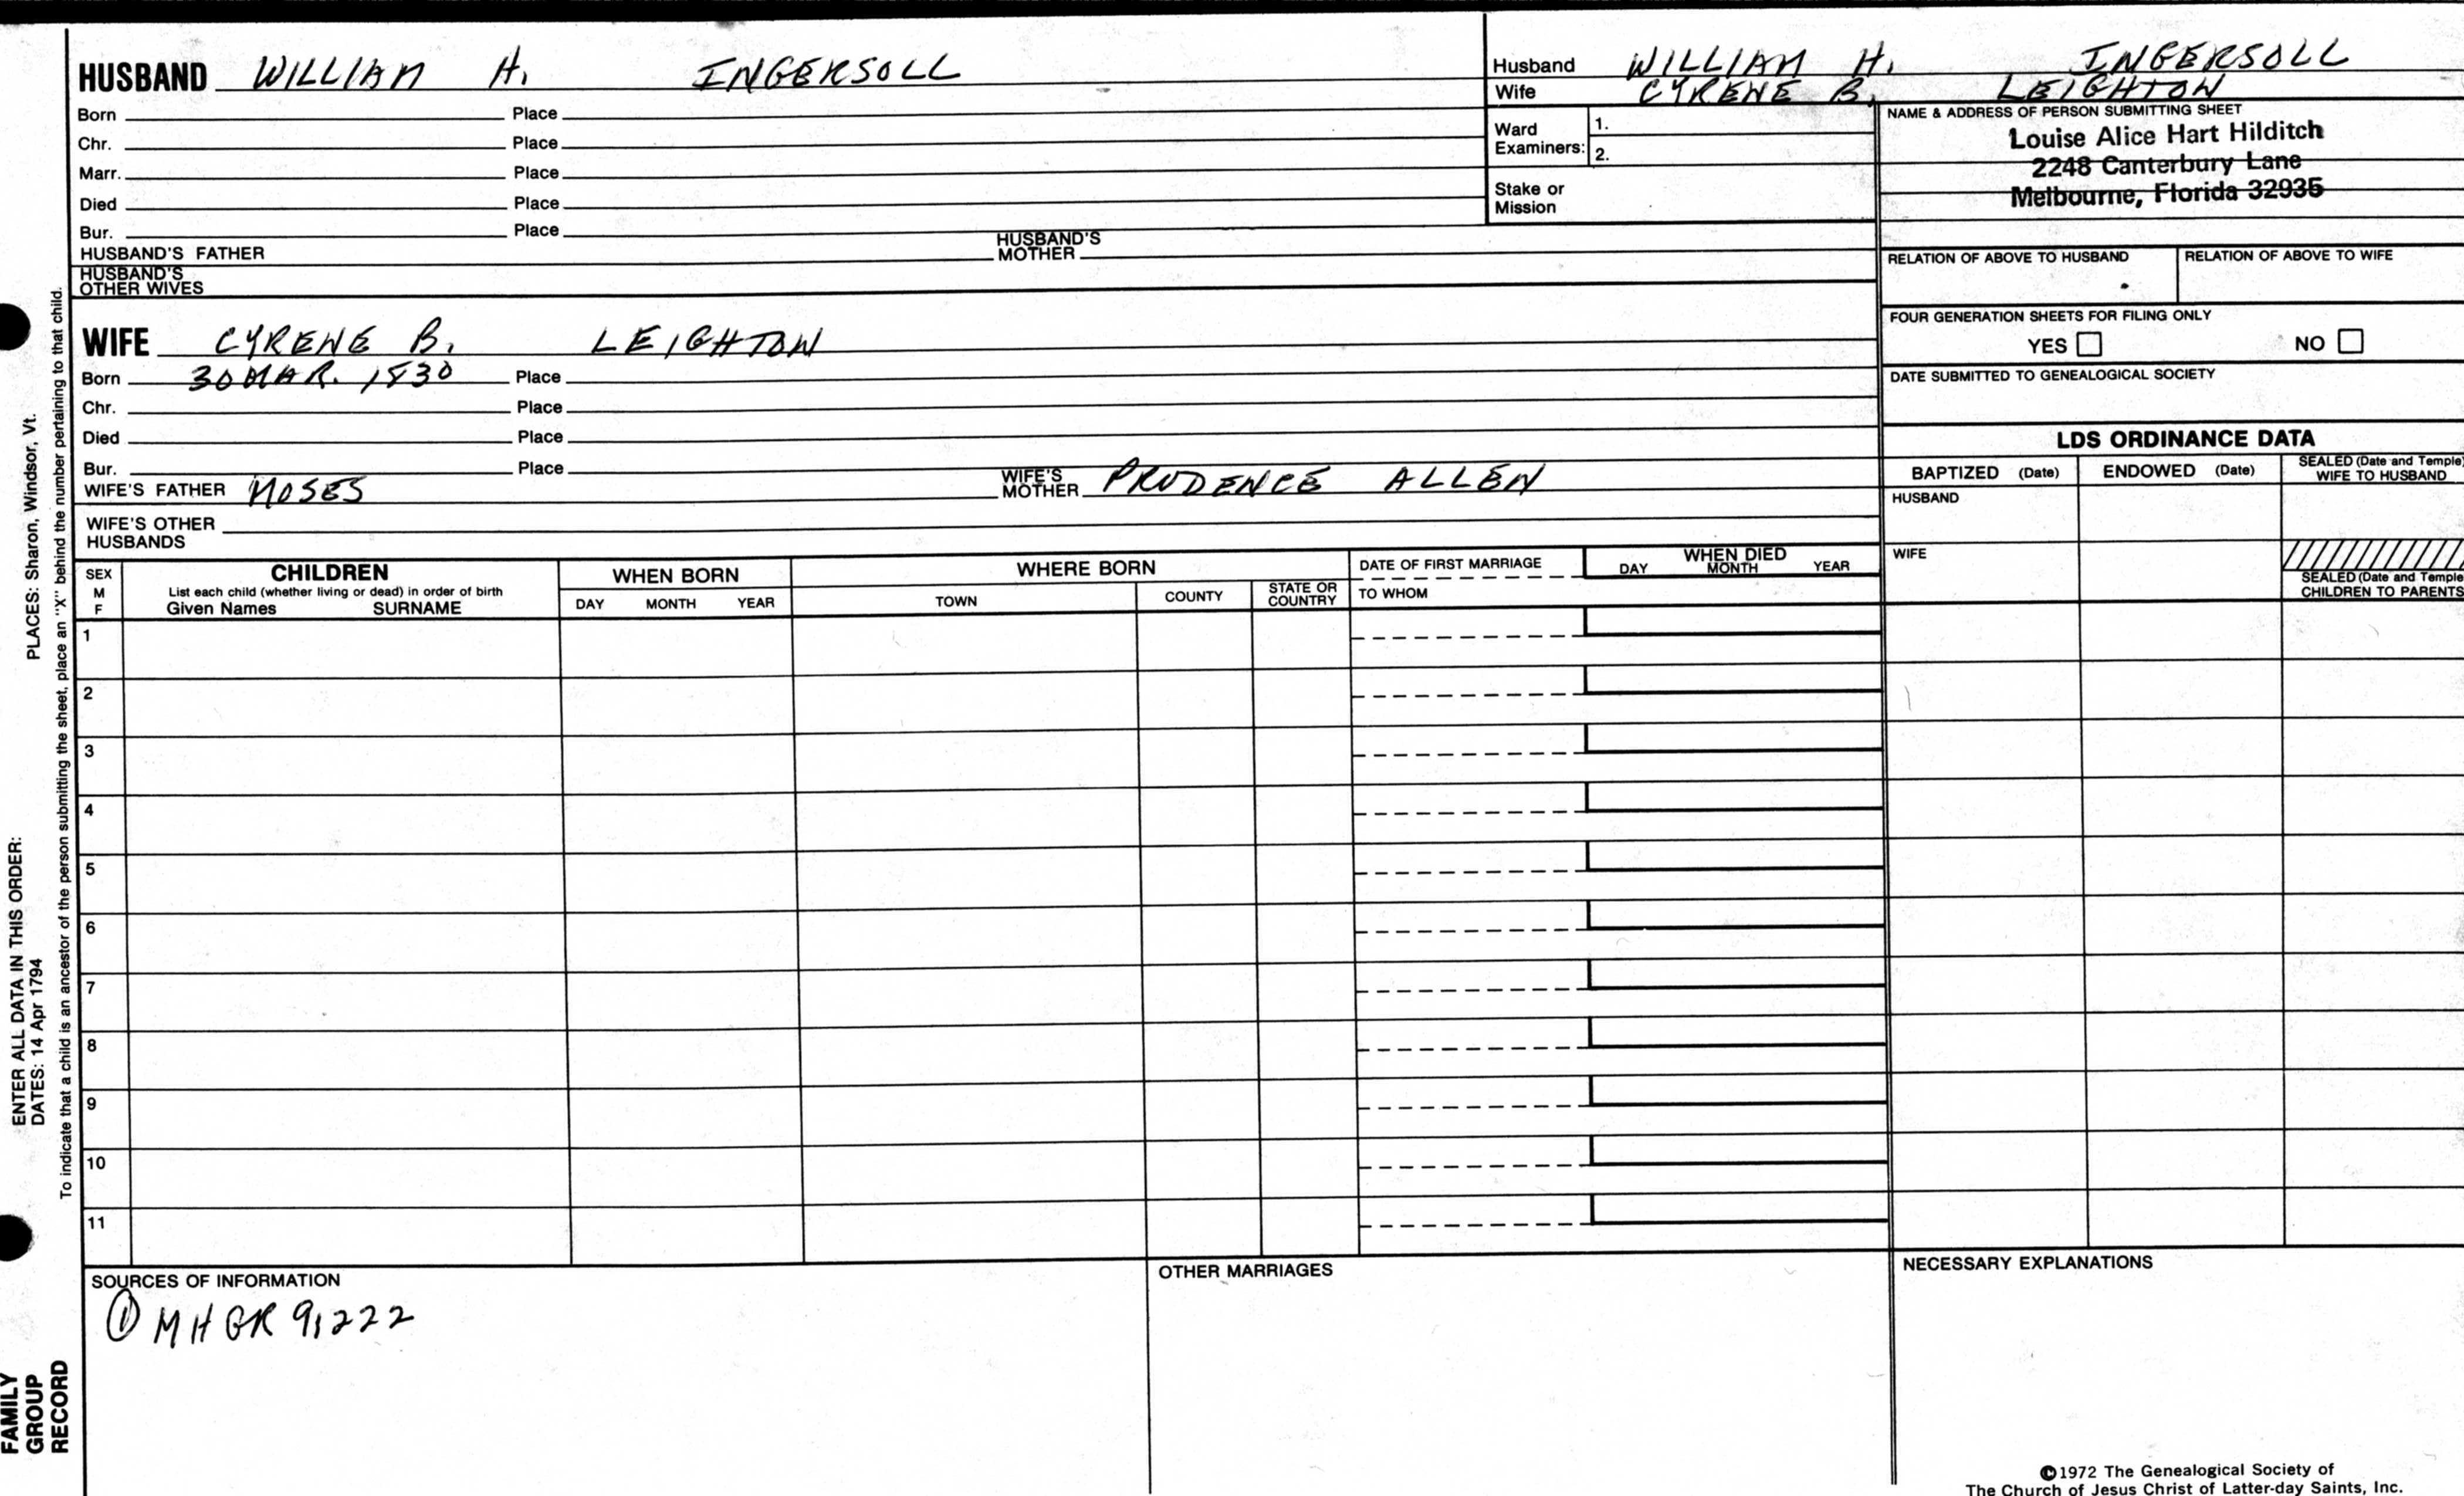 HUSBAND WILLIAM H. INGERSOLL
Born Place
Chr. Place
Marr. Place
Died Place
Bur. Place
HUSBAND'S FATHER HUSBAND'S MOTHER
HUSBAND'S OTHER WIVES
WIFE CYRENE B. LEIGHTON
Born 30 MAR. 1830 Place
Chr. Place
Died Place
Bur. Place
WIFE'S FATHER MOSES WIFE'S MOTHER PRUDENCE ALLEN
WIFE'S OTHER HUSBANDS
Husband WILLIAM H. INGERSOLL
Wife CYRENE B. LEIGHTON
Ward Examiners: 1.
2.
Stake or Mission
NAME & ADDRESS OF PERSON SUBMITTING SHEET
Louise Alice Hart Hilditch
2248 Canterbury Lane
Melbourne, Florida 32935
RELATION OF ABOVE TO HUSBAND RELATION OF ABOVE TO WIFE
FOUR GENERATION SHEETS FOR FILING ONLY
YES NO
DATE SUBMITTED TO GENEALOGICAL SOCIETY
LDS ORDINANCE DATA
BAPTIZED (Date) ENDOWED (Date) SEALED (Date and Temple) WIFE TO HUSBAND
HUSBAND
WIFE
SEALED (Date and Temple) CHILDREN TO PARENTS
SEX M F
CHILDREN
List each child (whether living or dead) in order of birth
Given Names SURNAME
WHEN BORN
DAY MONTH YEAR
WHERE BORN
TOWN COUNTY STATE OR COUNTRY
DATE OF FIRST MARRIAGE
TO WHOM
WHEN DIED
DAY MONTH YEAR
1
2
3
4
5
6
7
8
9
10
11
SOURCES OF INFORMATION
① MHGR 9,222
OTHER MARRIAGES
NECESSARY EXPLANATIONS
©1972 The Genealogical Society of
The Church of Jesus Christ of Latter-day Saints, Inc.
ENTER ALL DATA IN THIS ORDER:
DATES: 14 Apr 1794 PLACES: Sharon, Windsor, Vt.
To indicate that a child is an ancestor of the person submitting the sheet, place an "X" behind the number pertaining to that child.
FAMILY
GROUP
RECORD